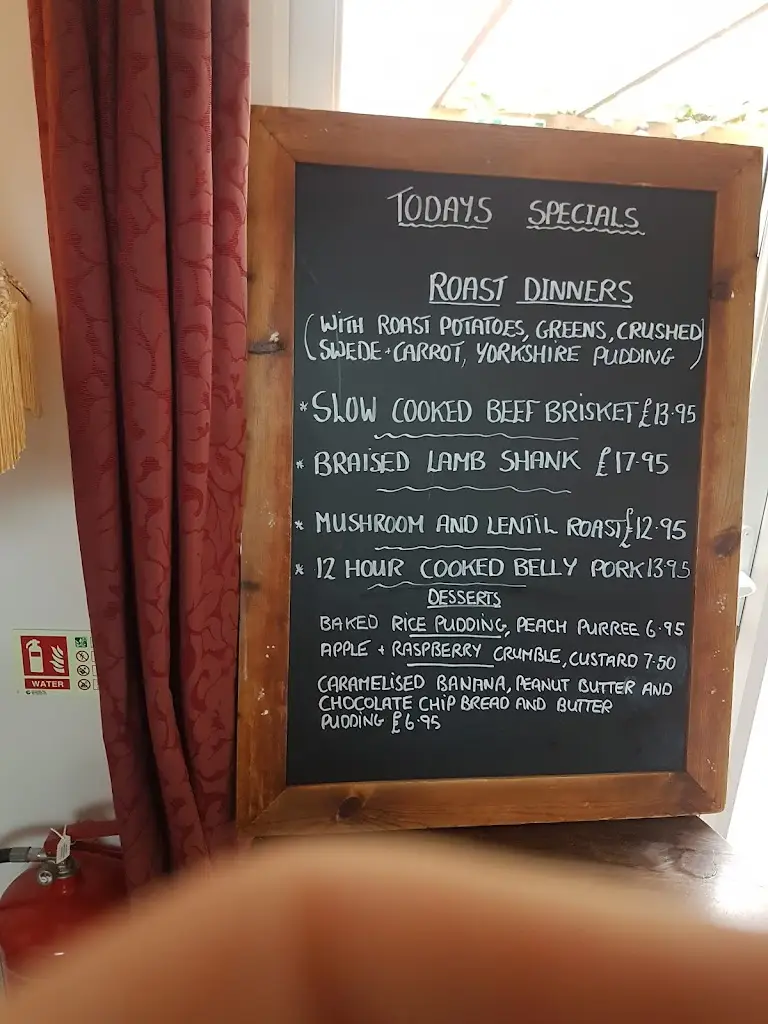 TODAYS SPECIALS
ROAST DINNERS
(WITH ROAST POTATOES, GREENS, CRUSHED
SWEDE + CARROT, YORKSHIRE PUDDING)
* SLOW COOKED BEEF BRISKET £13.95
* BRAISED LAMB SHANK £17.95
* MUSHROOM AND LENTIL ROAST £12.95
* 12 HOUR COOKED BELLY PORK 13.95
DESSERTS
BAKED RICE PUDDING, PEACH PURREE 6.95
APPLE + RASPBERRY CRUMBLE, CUSTARD 7.50
CARAMELISED BANANA, PEANUT BUTTER AND
CHOCOLATE CHIP BREAD AND BUTTER
PUDDING £6.95
WATER